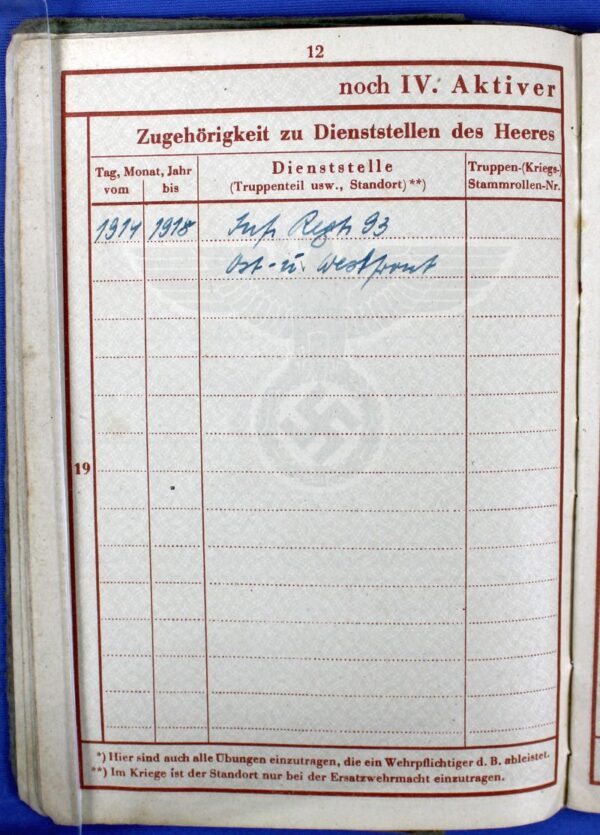 12
noch IV. Aktiver
Zugehörigkeit zu Dienststellen des Heeres
Tag, Monat, Jahr
vom bis
Dienststelle
(Truppenteil usw., Standort)**)
Truppen-(Kriegs-)
Stammrollen-Nr.
1914 1918 Inf. Regt. 93
Ost- u. Westfront
19
*) Hier sind auch alle Übungen einzutragen, die ein Wehrpflichtiger d. B. ableistet.
**) Im Kriege ist der Standort nur bei der Ersatzwehrmacht einzutragen.